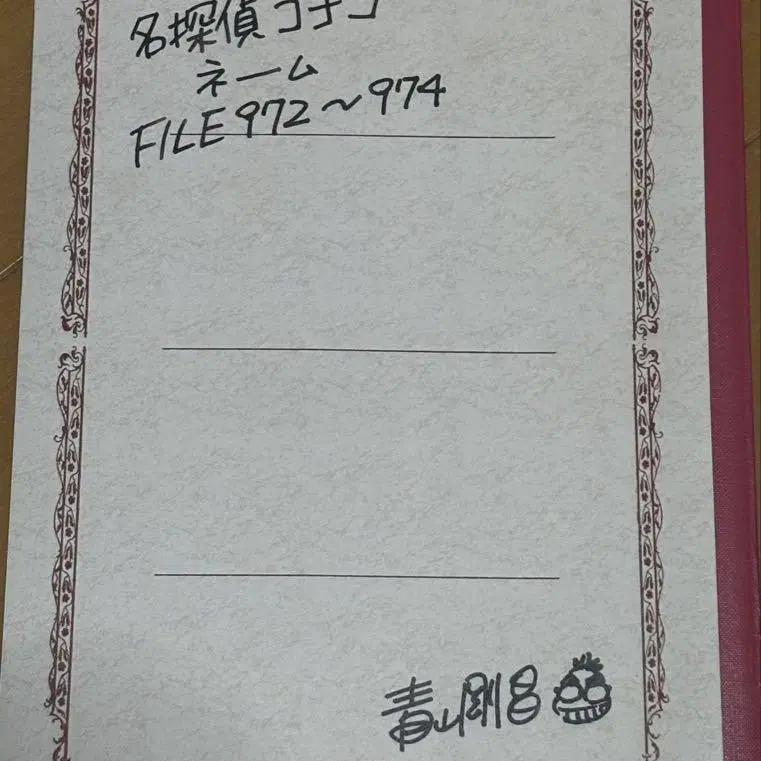 名探偵コナン
ネーム
FILE972〜974
青山剛昌